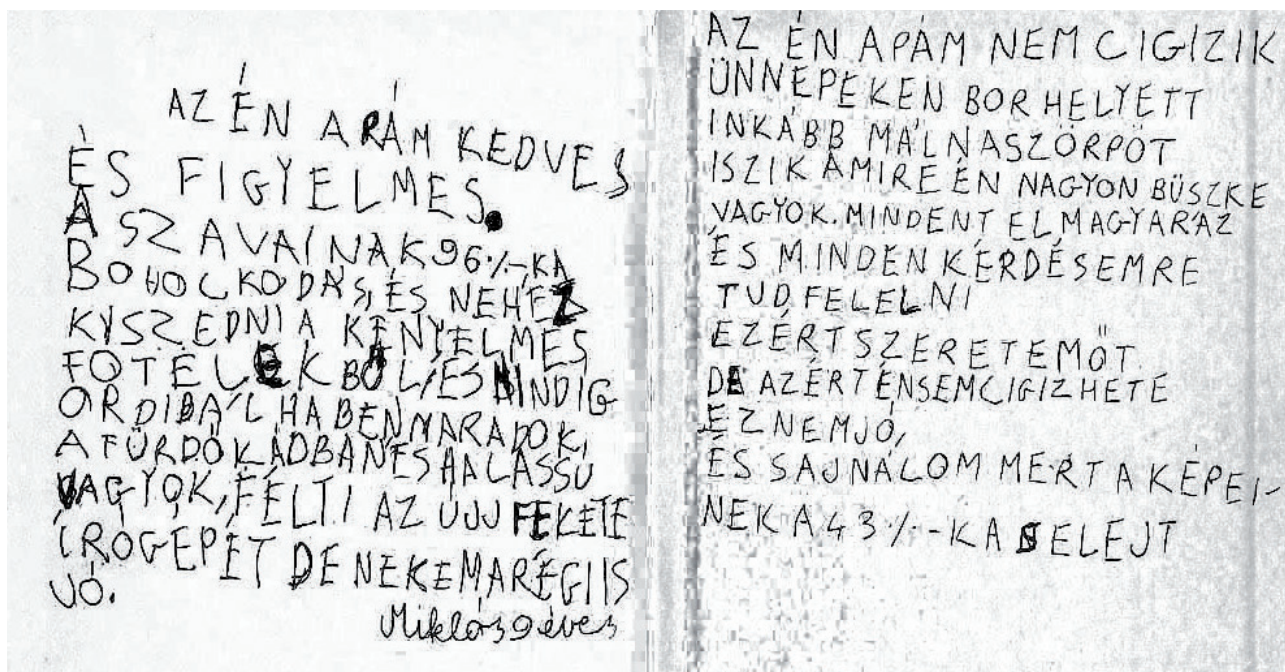 AZ ÉN APÁM KEDVES
ÉS FIGYELMES.
A SZAVAINAK 96%-KA
BOHOCKODÁS, ÉS NEHEZ
KISZEDNI A KÉNYELMES
FOTELEKBŐL, ÉS MINDIG
ORDIBÁL HA BENNMARADOK,
A FÜRDŐKÁDBAN ÉS HA LASSU
VAGYOK, FÉLTI AZ ÚJJ FEKETE
ÍRÓGÉPÉT DE NEKEM A RÉGI IS
JÓ.
Miklós 9 éves
AZ ÉN APÁM NEM CIGIZIK
ÜNNEPEKEN BOR HELYETT
INKÁBB MÁLNASZÖRPÖT
ISZIK AMIRE ÉN NAGYON BÜSZKE
VAGYOK. MINDENT ELMAGYARÁZ
ÉS MINDEN KÉRDÉSEMRE
TUD FELELNI
EZÉRT SZERETEM ŐT
DE AZÉRT ÉN SEM CIGIZHETE
EZ NEM JÓ,
ÉS SAJNÁLOM MERT A KÉPEI-
NEK A 43%-KA SELEJT